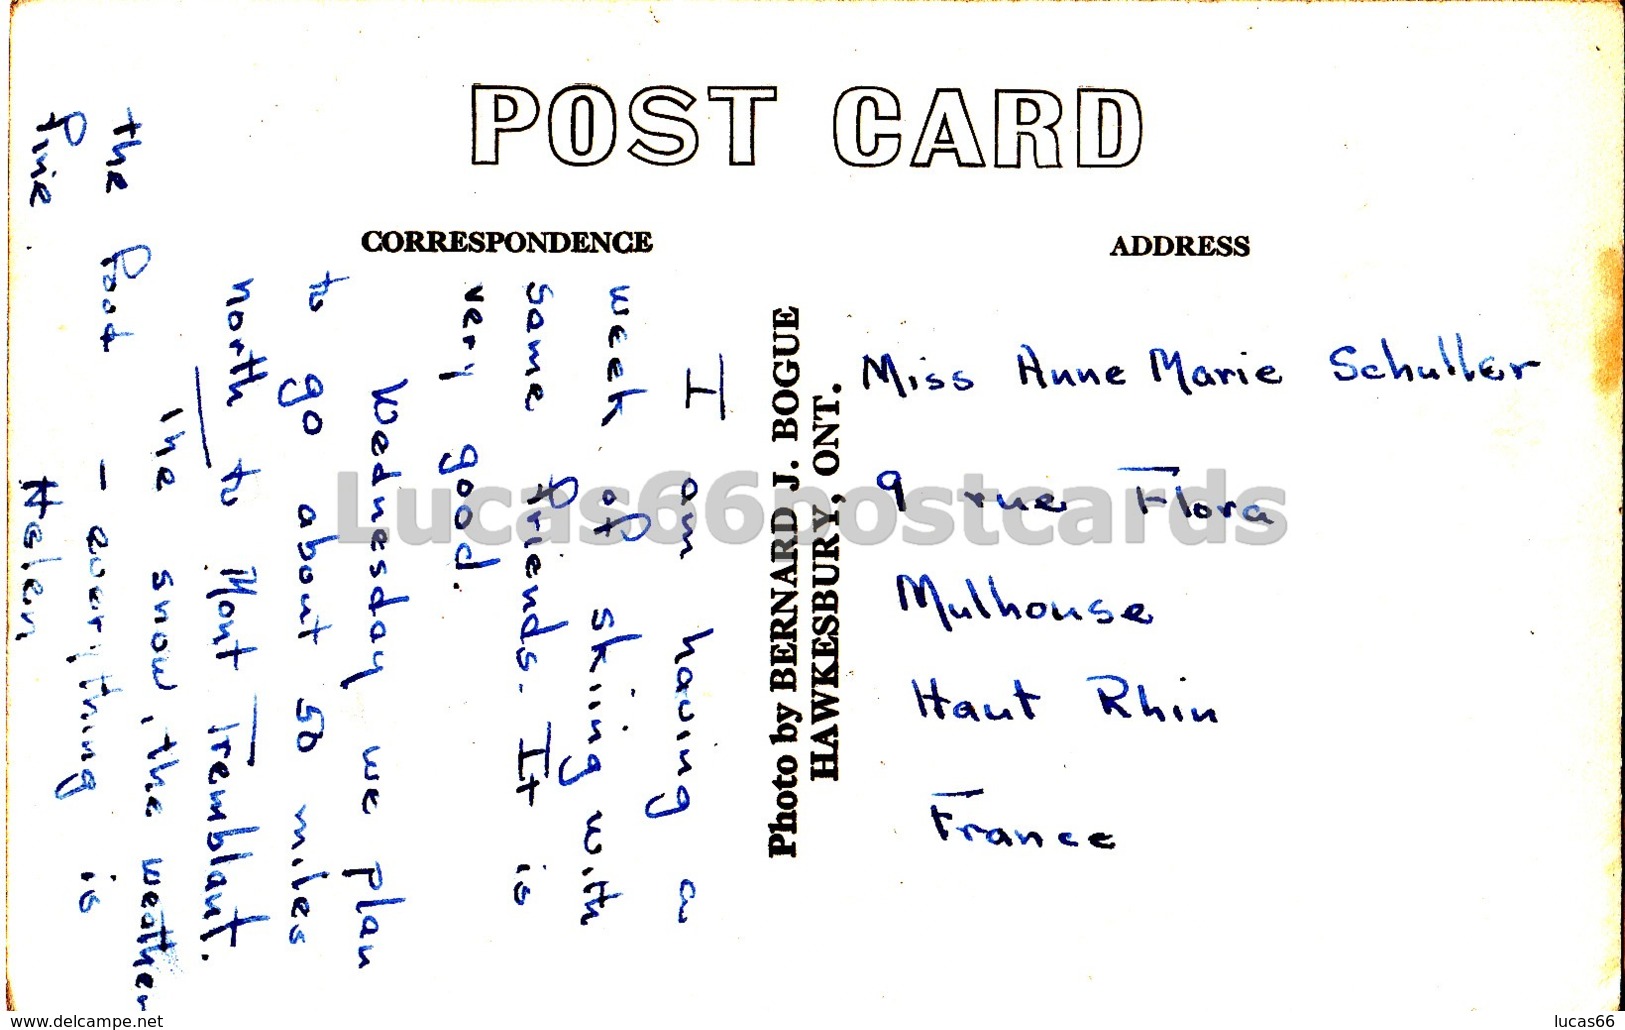 POST CARD
CORRESPONDENCE
ADDRESS
I am having a
week of skiing with
some friends. It is
very good.
Wednesday we plan
to go about 50 miles
north to Mont Tremblant.
The snow, the weather
the food – everything is
fine.
Helen
Photo by BERNARD J. BOGUE
HAWKESBURY, ONT.
Miss Anne Marie Schuller
9 rue Flora
Mulhouse
Haut Rhin
France
Lucas66postcards
www.delcampe.net
lucas66